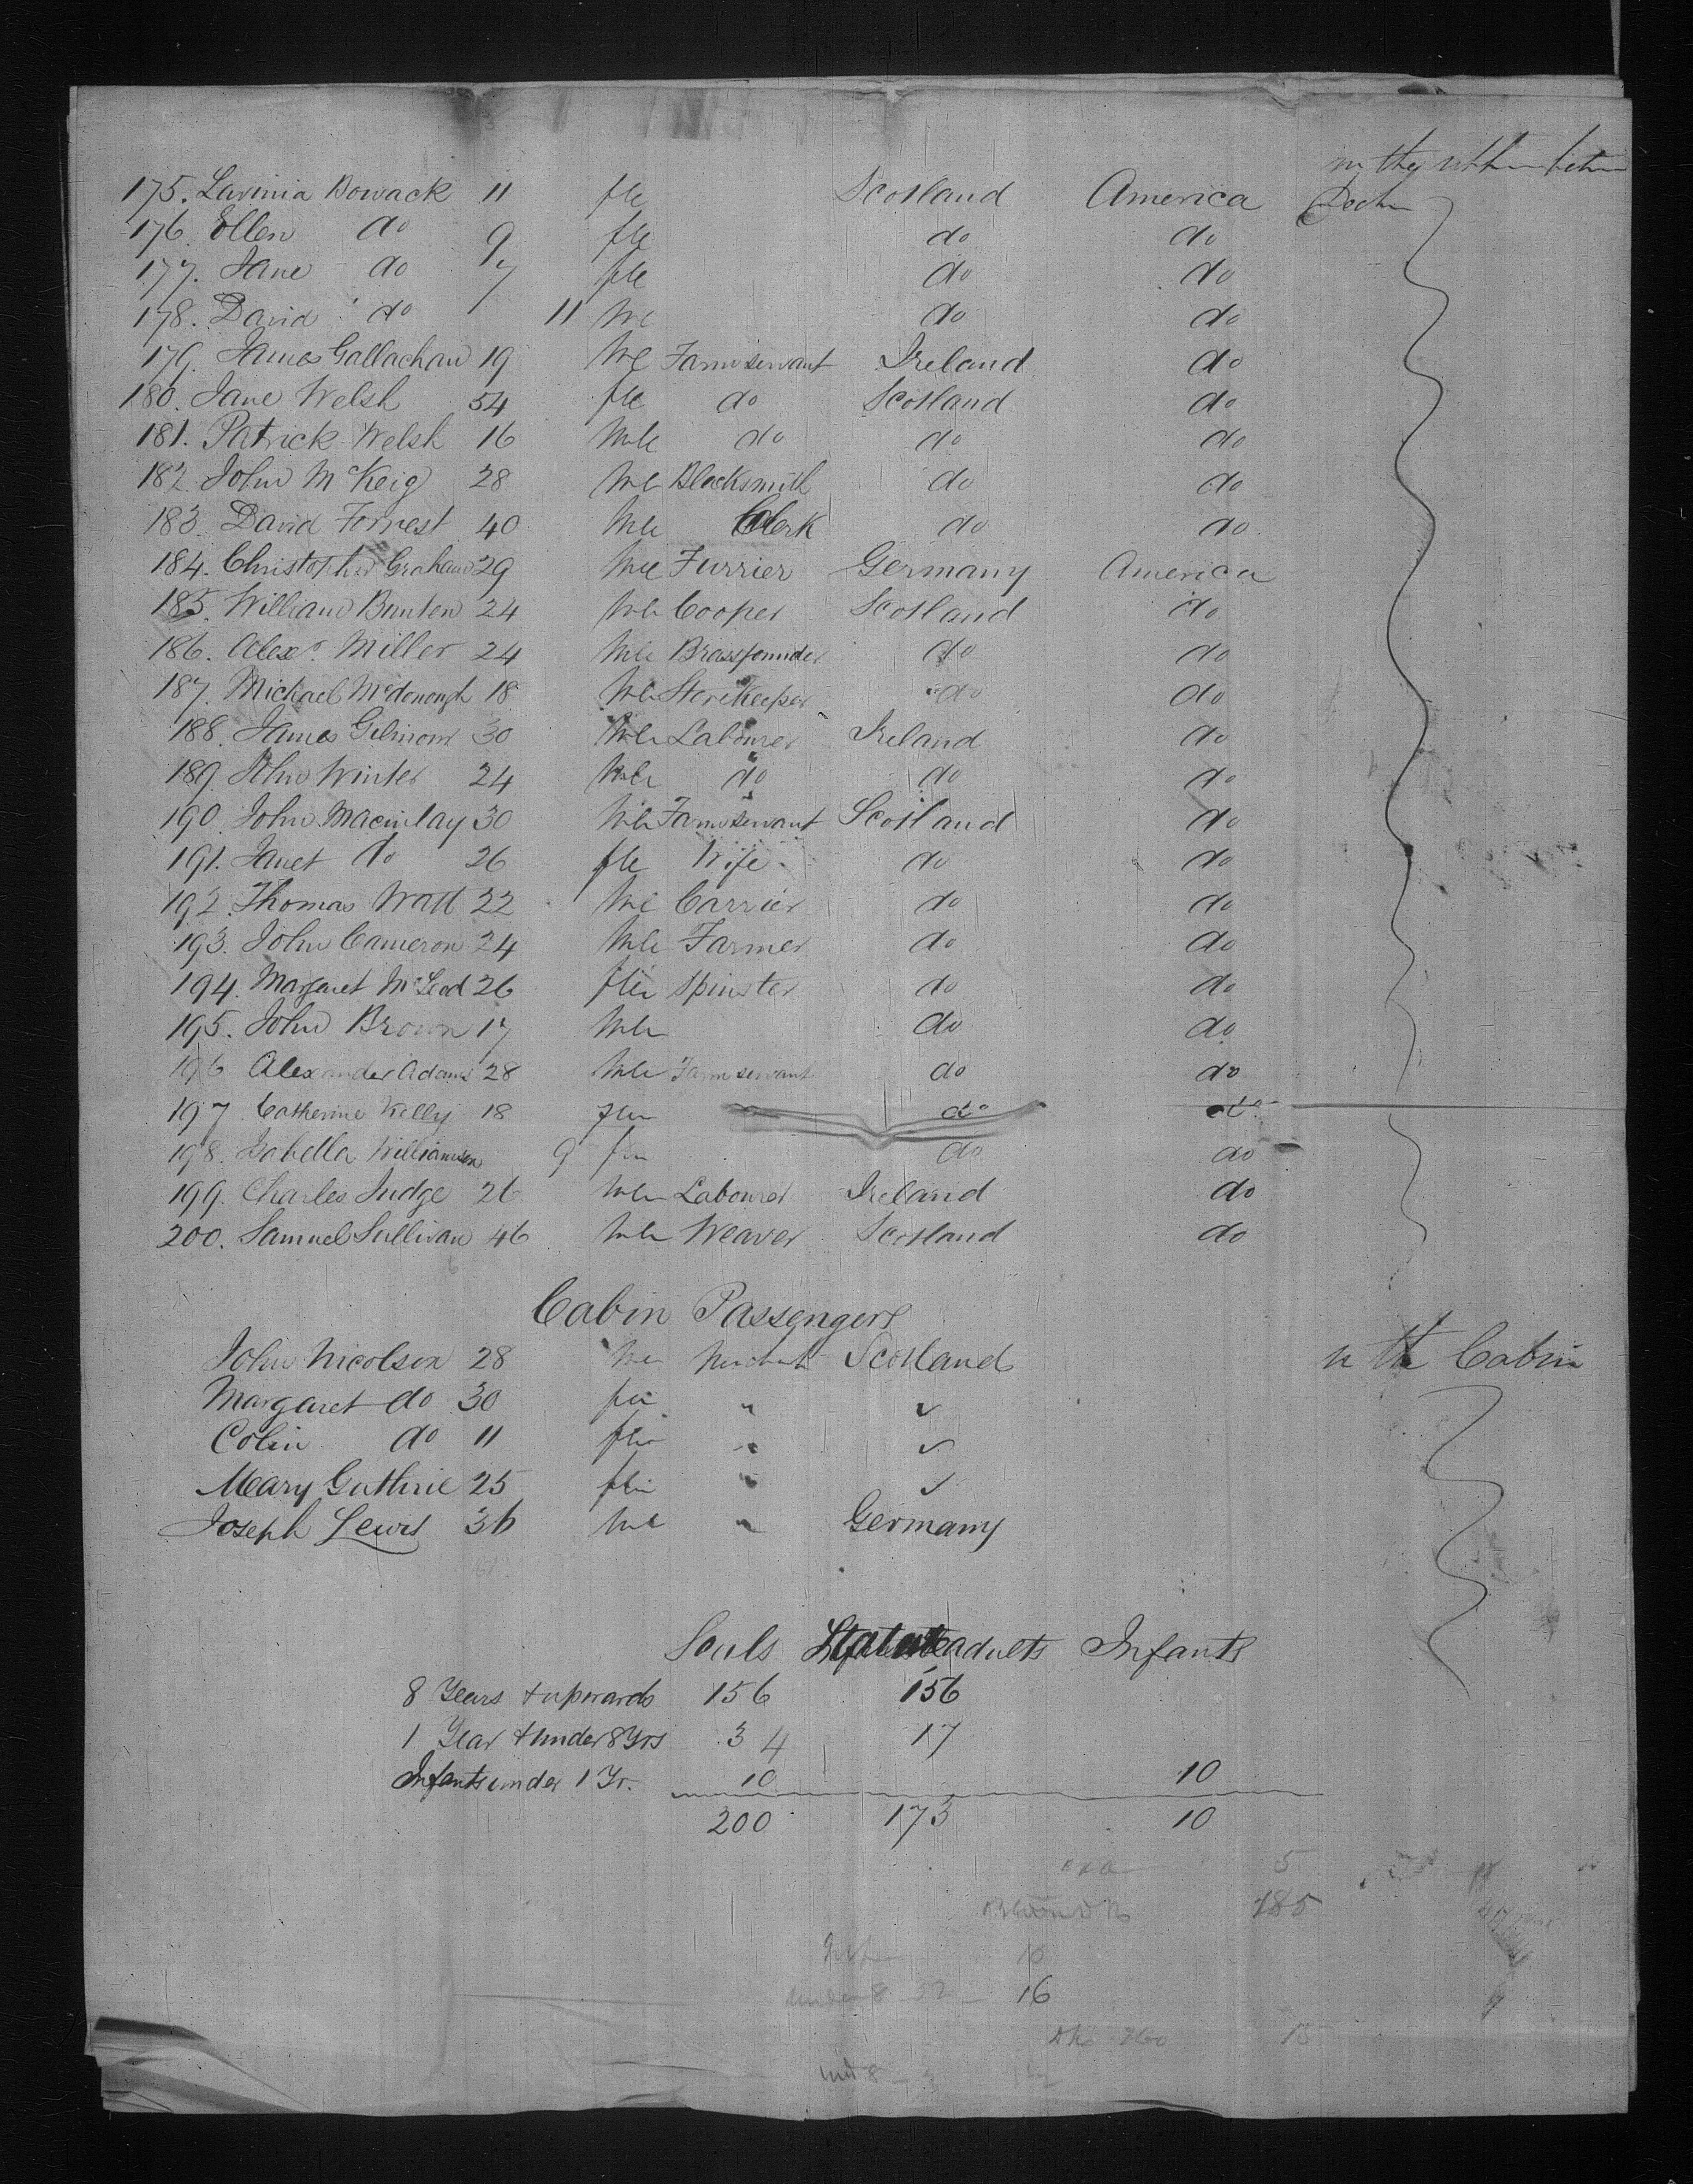 in the
175. Lavinia Bowack 11 fle Scotland America Deck
176. Ellen do 9 fle do do
177. Jane do 7 fle do do
178. David do 11 Me do do
179. James Gallachan 19 Me Farmservant Ireland do
180. Jane Welsh 54 fle do Scotland do
181. Patrick Welsh 16 Mle do do do
182. John McKeig 28 Mle Blacksmith do do
183. David Forrest 40 Mle Clerk do do
184. Christopher Graham 29 Mle Furrier Germany America
185. William Bunten 24 Mle Cooper Scotland do
186. Alexr. Miller 24 Mle Brassfounder do do
187. Michael McDonough 18 Mle Storekeeper do do
188. James Gilmour 30 Mle Labourer Ireland do
189. John Winter 24 Mle do do do
190. John Macinlay 30 Mle Farmservant Scotland do
191. Janet do 26 fle Wife do do
192. Thomas Watt 22 Me Carrier do do
193. John Cameron 24 Mle Farmer do do
194. Margaret McLeod 26 fle Spinster do do
195. John Brown 17 Mle do do
196 Alexander Adams 28 Mle Farmservant do do
197 Catherine Kelly 18 fle do do
198. Isabella Williamson 9 fle do do
199. Charles Judge 26 Mle Labourer Ireland do
200. Samuel Sullivan 46 Mle Weaver Scotland do
Cabin Passengers
John Nicolson 28 Me Merchant Scotland in the Cabin
Margaret do 30 fle " "
Colin do 11 fle " "
Mary Guthrie 25 fle " "
Joseph Lewis 36 Mle " Germany
Souls Statute adults Infants
8 Years & upwards 156 156
1 Year & under 8 Yrs 34 17
Infants under 1 Yr. 10 10
200 173 10
5
185
10
under 8 32 16